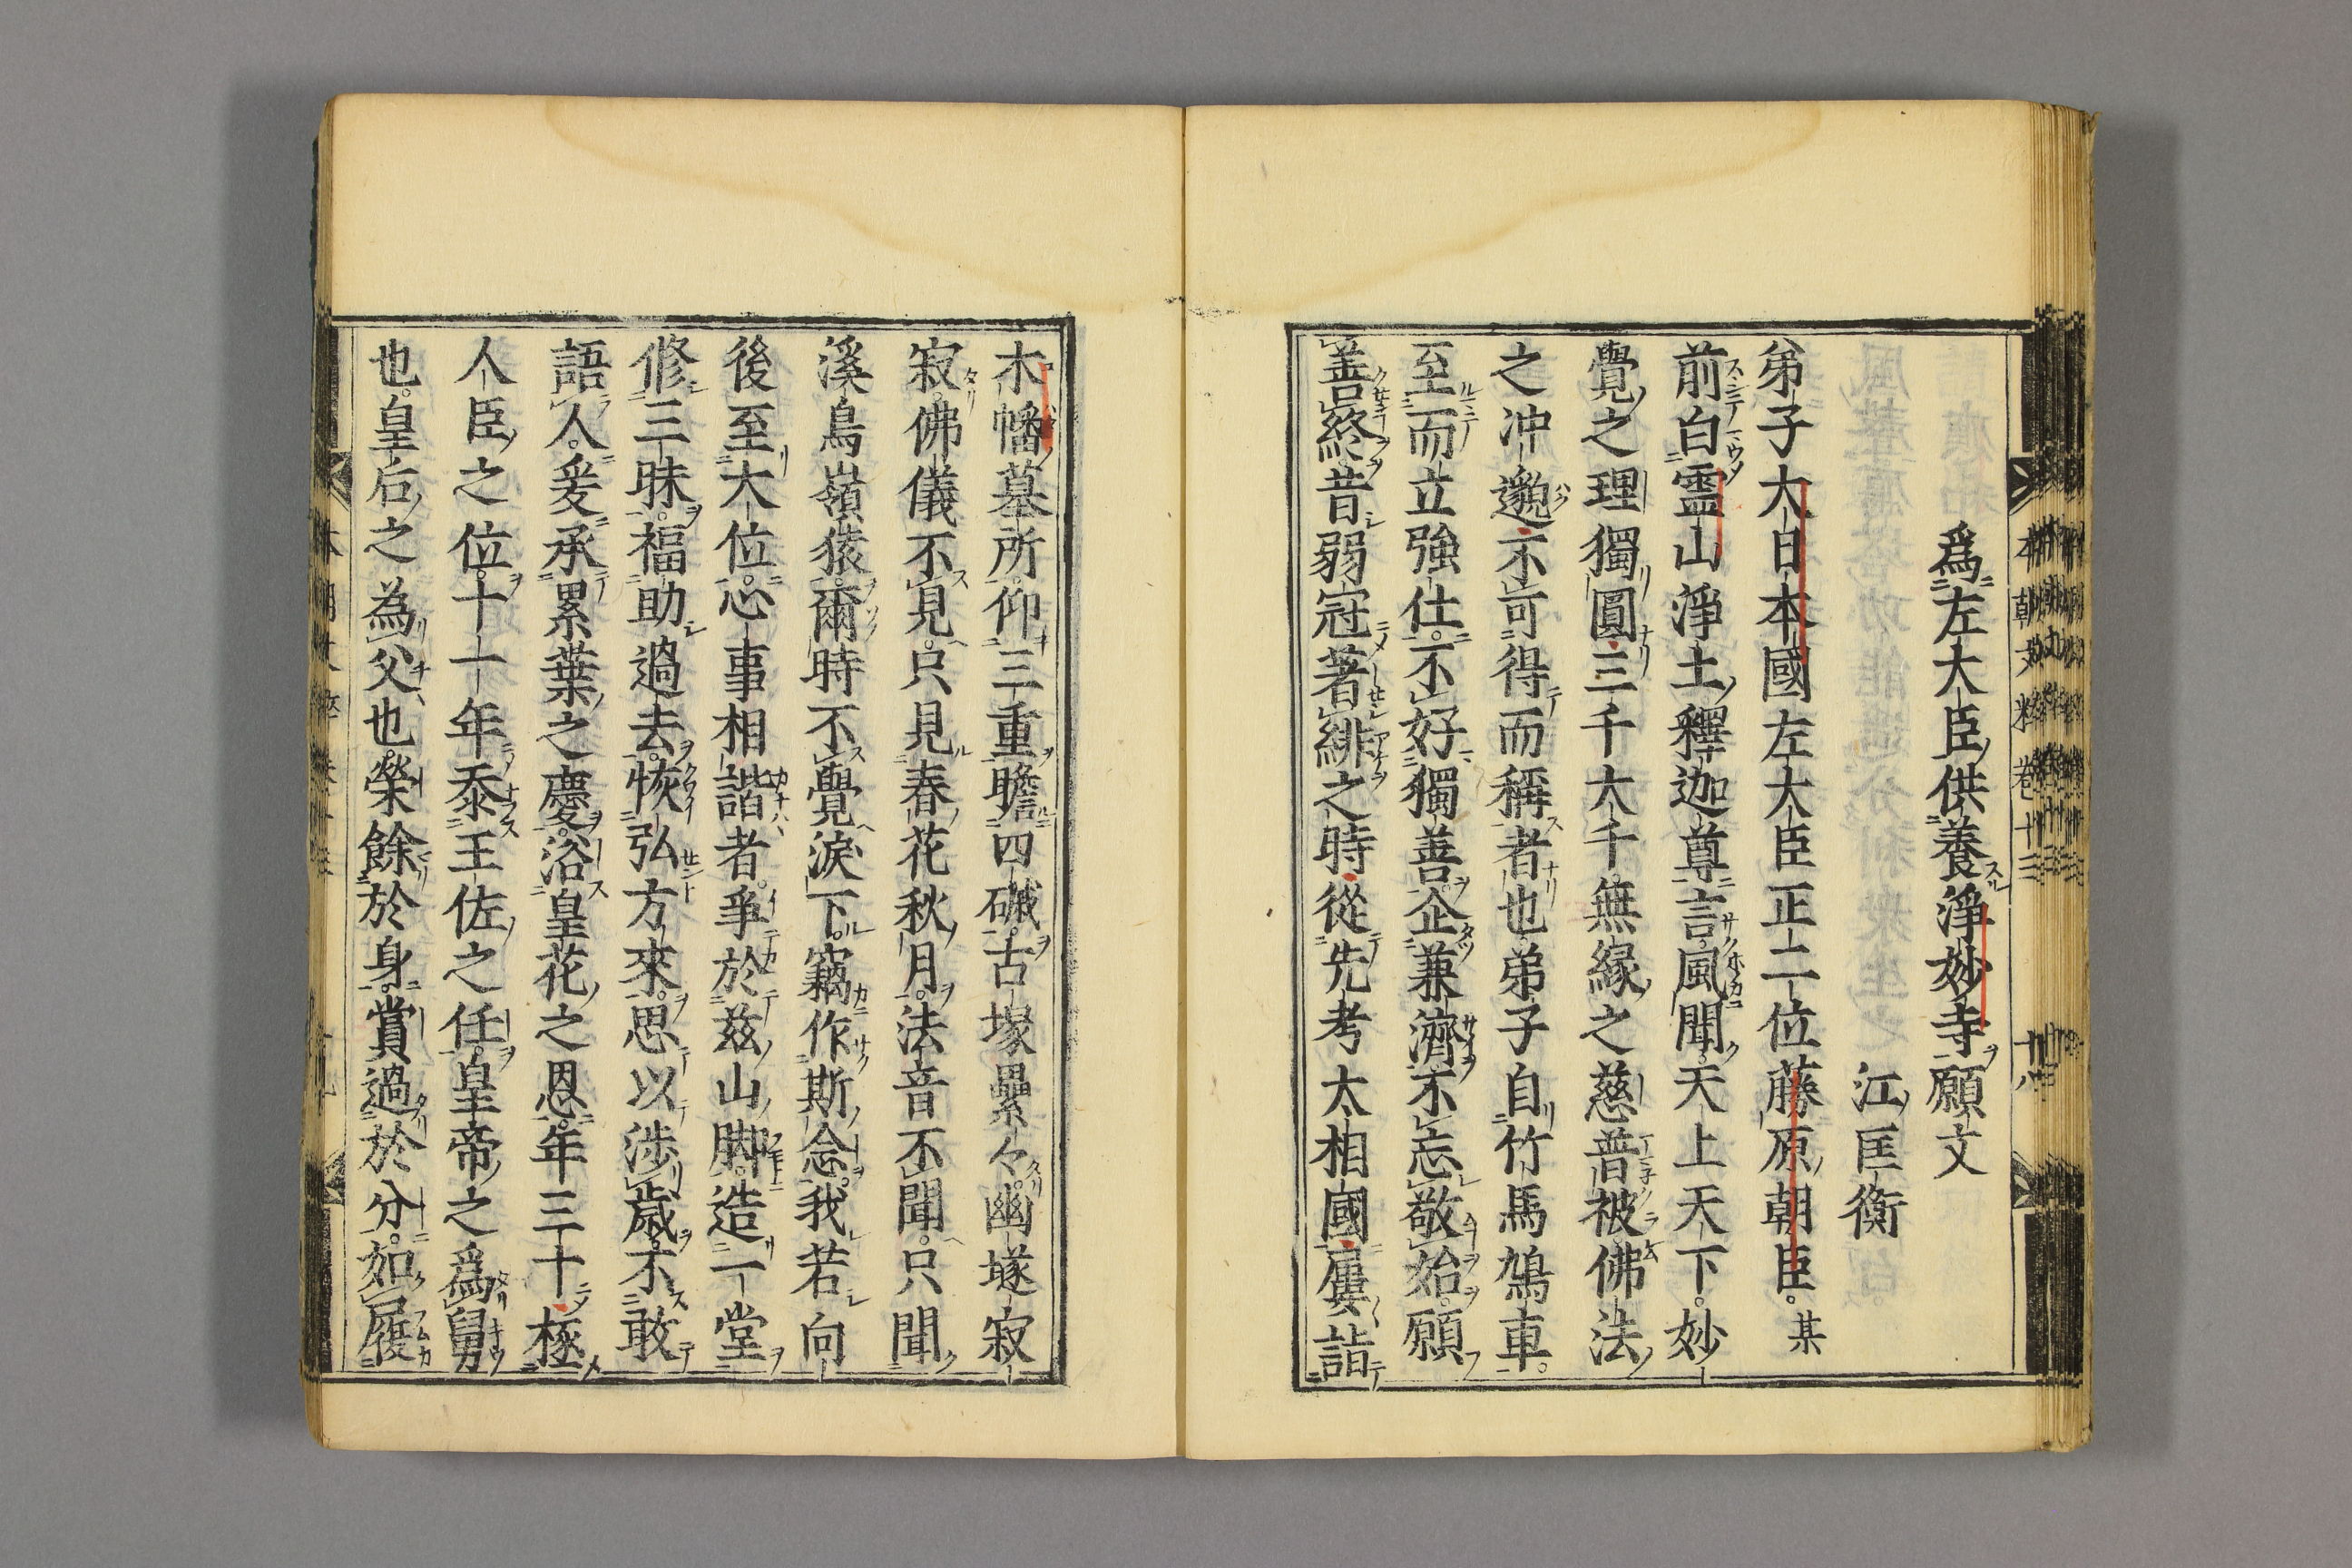 爲左大臣供養淨妙寺願文
江匡衡
弟子大日本國左大臣正二位藤原朝臣某
前白靈山淨土釋迦尊言風聞天上天下妙
覺之理獨圓三千大千無緣之慈普被佛法
之冲邈不可得而稱者也弟子自竹馬鳩車
至而立強仕不好獨善企兼濟不忘敬始願
善終昔弱冠著緋之時從先考大相國屢詣
木幡墓所仰三重瞻四墄古塚纍々幽邃寂
寂佛儀不見只見春花秋月法音不聞只聞
溪鳥嶺猿爾時不覺淚下竊作斯念我若向
後至大位心事相諧者爭於茲山脚造一堂
修三昧福助過去恢弘方來思以涉歲不敢
語人爰承累葉之慶浴皇花之恩年三十極
人臣之位十一年忝王佐之任皇帝之爲舅
也皇后之為父也榮餘於身賞過於分如履
本朝文粹卷十三
十八